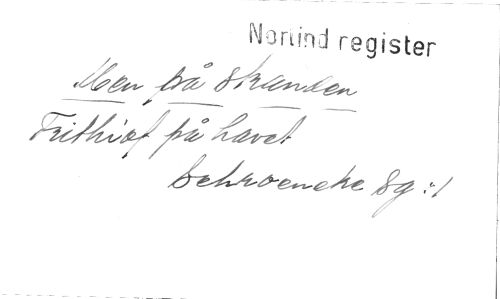 Norlind register
Men på stranden
Frithiof på havet
Schroeneke Sg :1